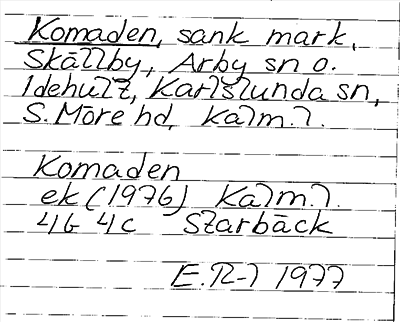 Komaden, sank mark,
Skällby, Arby sn o.
Idehult, Karlslunda sn,
S. Möre hd, Kalm. l.
Komaden
ek (1976) Kalm. l.
4G 4c Starbäck
E.R-l 1977